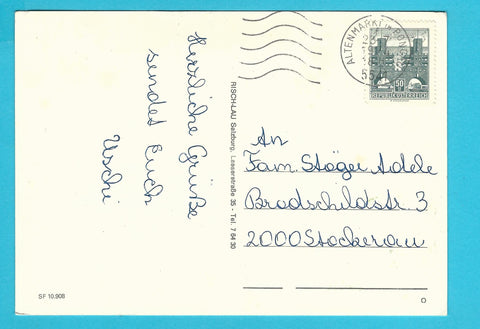 Herzliche Grüße
sendet Euch
Uschi
RISCH-LAU Salzburg, Lasserstraße 35 - Tel. 7 64 30
ALTENMARKT im PONGAU
50
REPUBLIK ÖSTERREICH
An
Fam. Stöger Adele
Bradschildstr. 3
2000 Stockerau
SF 10.908
O